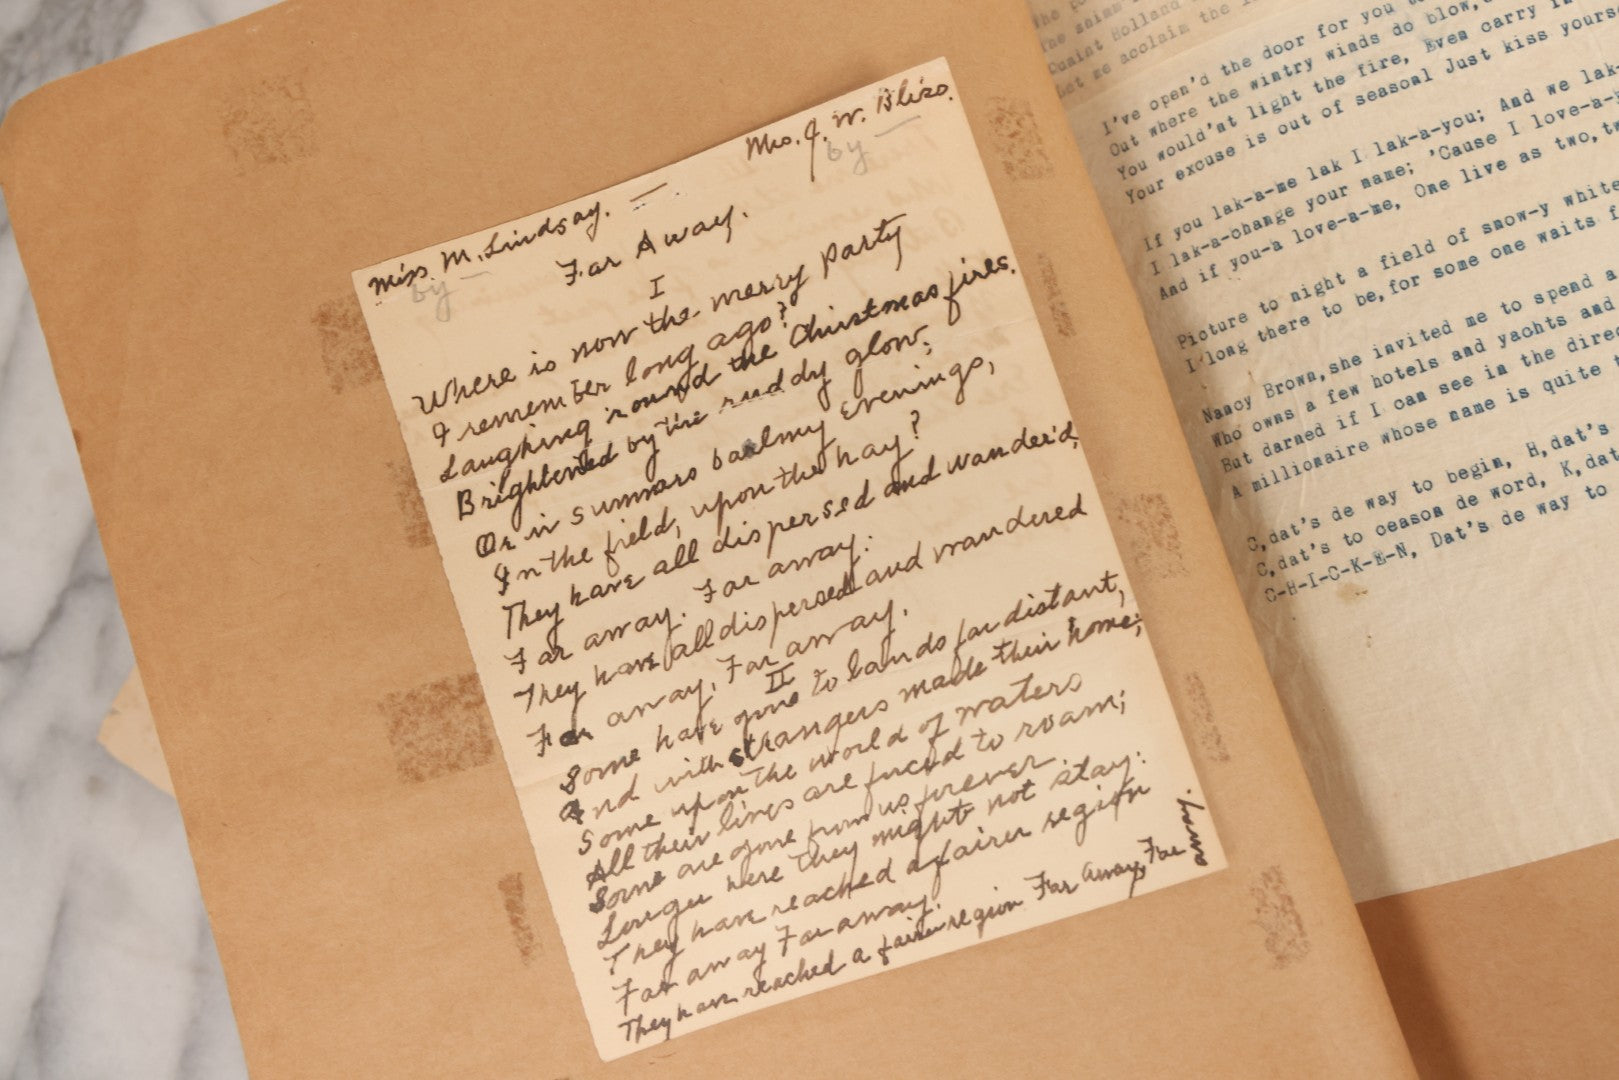 Miss. M. Lindsay.
by
Mrs. J. W. Bliss.
by
Far Away.
I
Where is now the merry party
I remember long ago?
Laughing round the Christmas fires.
Brightened by the ruddy glow;
Or in summers balmy evenings,
In the field, upon the hay?
They have all dispersed and wander'd,
Far away. Far away:
They have all dispersed and wandered
Far away, Far away.
II
Some have gone to lands far distant,
And with strangers made their home;
Some upon the world of waters
All their lives are forced to roam;
Some are gone from us forever
Longer here they might not stay:
They have reached a fairer region
Far away Far away.
They have reached a fairer region Far away, Far
away.
the
The
Quaint Holland
Let me acclaim the
I've open'd the door for you
Out where the wintry winds do blow,
You would'nt light the fire, Even carry in
Your excuse is out of seasonl Just kiss yourse
If you lak-a-me lak I lak-a-you; And we lak-
I lak-a-change your name; 'Cause I love-a-y
And if you-a love-a-me, One live as two, tw
Picture to night a field of snow-y white
I long there to be, for some one waits f
Nancy Brown, she invited me to spend a
Who owns a few hotels and yachts and
But darned if I can see in the direc
A millionaire whose name is quite
C, dat's de way to begin, H, dat's
C, dat's to ceason de word, K, dat
C-H-I-C-K-E-N, Dat's de way to